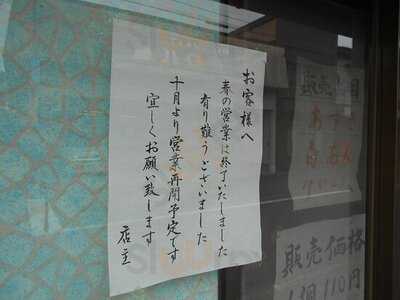 お客様へ
春の営業は終了いたしました
有り難うございました
十月より営業再開予定です
宜しくお願い致します
店主
販売
販売価格
1個110円